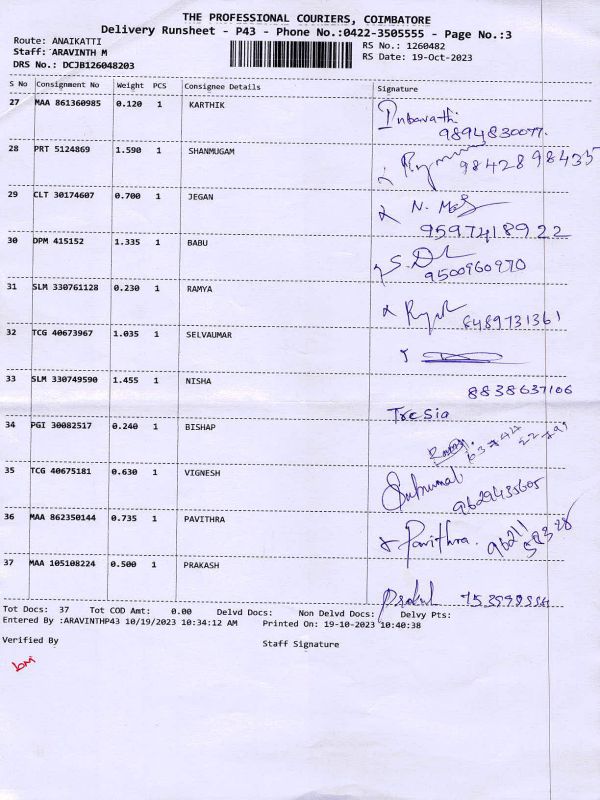 THE PROFESSIONAL COURIERS, COIMBATORE
Delivery Runsheet - P43 - Phone No.:0422-3505555 - Page No.:3
Route: ANAIKATTI RS No.: 1260482
Staff: ARAVINTH M RS Date: 19-Oct-2023
DRS No.: DCJB126048203
S No Consignment No Weight PCS Consignee Details Signature
27 MAA 861360985 0.120 1 KARTHIK
28 PRT 5124869 1.590 1 SHANMUGAM 98428 98435
29 CLT 30174607 0.700 1 JEGAN
9597418922
30 DPM 415152 1.335 1 BABU
9500960970
31 SLM 330761128 0.230 1 RAMYA
32 TCG 40673967 1.035 1 SELVAUMAR
33 SLM 330749590 1.455 1 NISHA 8838637106
Tresia
34 PGI 30082517 0.240 1 BISHAP
35 TCG 40675181 0.630 1 VIGNESH
9629435605
36 MAA 862350144 0.735 1 PAVITHRA Pavithra.
37 MAA 105108224 0.500 1 PRAKASH
Tot Docs: 37 Tot COD Amt: 0.00 Delvd Docs: Non Delvd Docs: Delvy Pts:
Entered By :ARAVINTHP43 10/19/2023 10:34:12 AM Printed On: 19-10-2023 10:40:38
Verified By Staff Signature